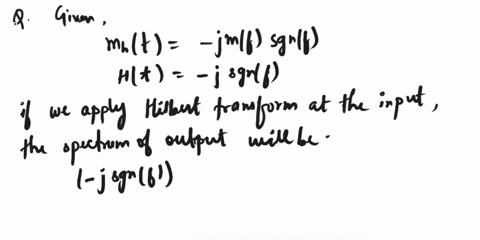 Q. Given,
mh(t) = -jm(f) sgn(f)
H(t) = -j sgn(f)
if we apply Hilbert transform at the input,
the spectrum of output will be.
(-j sgn(f))